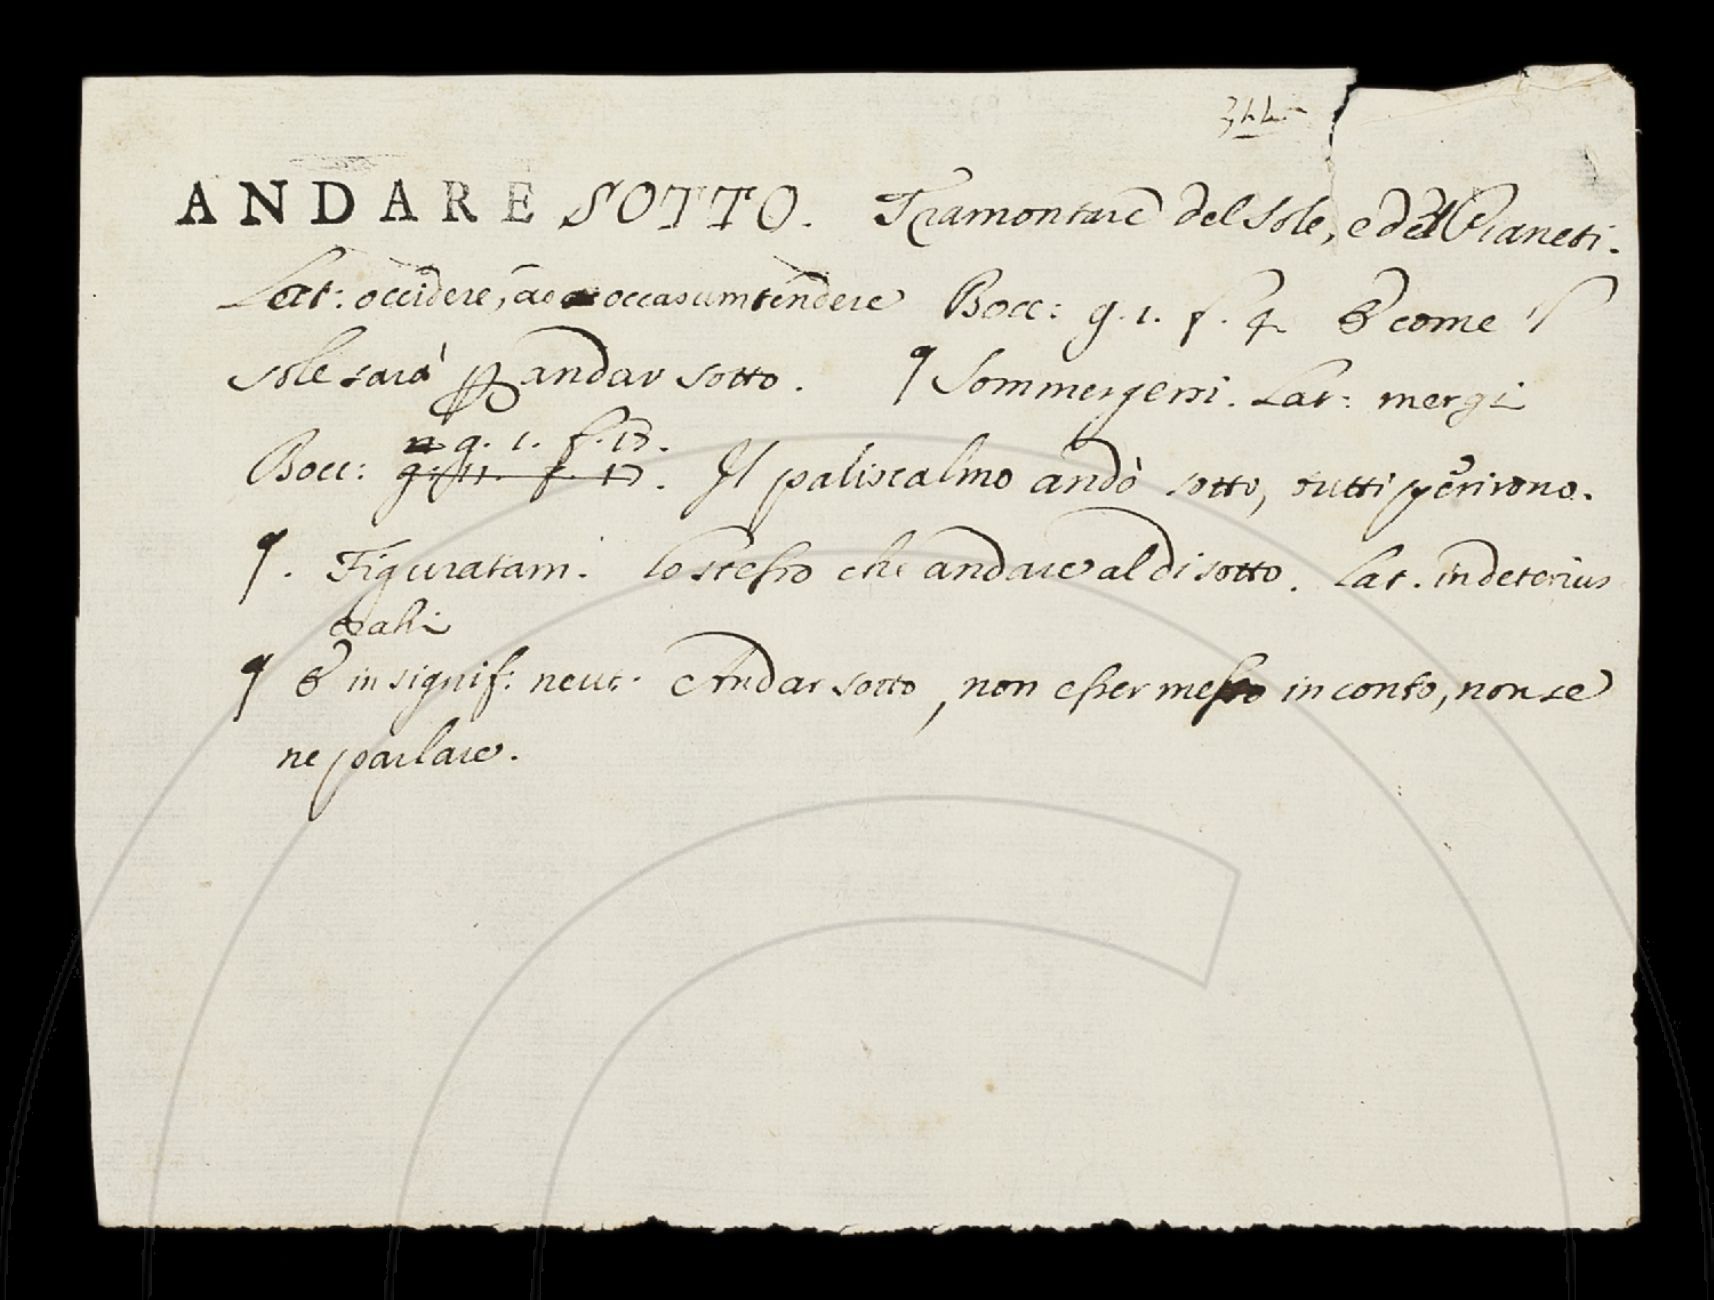 ANDARE SOTTO. Tramontare del Sole, e de Pianeti.
Lat: occidere, ad occasum tendere Bocc: g. 1. f. 4 E come 'l
sole sarà p andar sotto. ¶ Sommergersi. Lat: mergi
g. 1. f. 17.
Bocc: g. 11. f. 17. Il paliscalmo andò sotto, tutti perirono.
¶. Figuratam. lo stesso che andare al di sotto. Lat. in deterius
trahi
¶ E in signif: neut. Andar sotto, non esser messo in conto, non se
ne parlare.